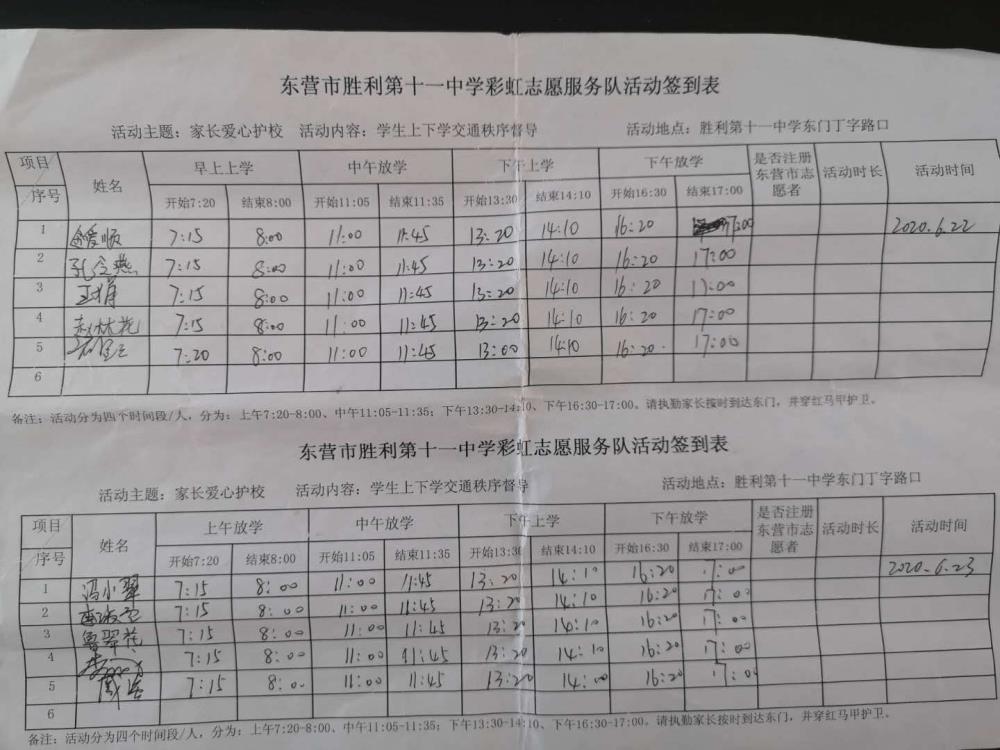 东营市胜利第十一中学彩虹志愿服务队活动签到表
活动主题：家长爱心护校 活动内容：学生上下学交通秩序督导 活动地点：胜利第十一中学东门丁字路口
项目 姓名 早上上学 中午放学 下午上学 下午放学 是否注册东营市志愿者 活动时长 活动时间
序号 开始7:20 结束8:00 开始11:05 结束11:35 开始13:30 结束14:10 开始16:30 结束17:00
1 爱顺 7:15 8:00 11:00 11:45 13:20 14:10 16:20 17:00 2020.6.22
2 孔令燕 7:15 8:00 11:00 11:45 13:20 14:10 16:20 17:00
3 7:15 8:00 11:00 11:45 13:20 14:10 16:20 17:00
4 赵林花 7:15 8:00 11:00 11:45 13:20 14:10 16:20 17:00
5 7:20 8:00 11:00 11:45 13:00 14:10 16:20 17:00
6
备注：活动分为四个时间段/人，分为：上午7:20-8:00、中午11:05-11:35；下午13:30-14:10、下午16:30-17:00。请执勤家长按时到达东门，并穿红马甲护卫。
东营市胜利第十一中学彩虹志愿服务队活动签到表
活动主题：家长爱心护校 活动内容：学生上下学交通秩序督导 活动地点：胜利第十一中学东门丁字路口
项目 姓名 上午放学 中午放学 下午上学 下午放学 是否注册东营市志愿者 活动时长 活动时间
序号 开始7:20 结束8:00 开始11:05 结束11:35 开始13:30 结束14:10 开始16:30 结束17:00
1 冯小翠 7:15 8:00 11:00 11:45 13:20 14:10 16:20 17:00 2020.6.23
2 7:15 8:00 11:00 11:45 13:20 14:10 16:20 17:00
3 鲁翠花 7:15 8:00 11:00 11:45 13:20 14:10 16:20 17:00
4 7:15 8:00 11:00 11:45 13:20 14:10 16:20 17:00
5 7:15 8:00 11:00 11:45 13:20 14:00 16:20 17:00
6
备注：活动分为四个时间段/人，分为：上午7:20-8:00、中午11:05-11:35；下午13:30-14:10、下午16:30-17:00。请执勤家长按时到达东门，并穿红马甲护卫。